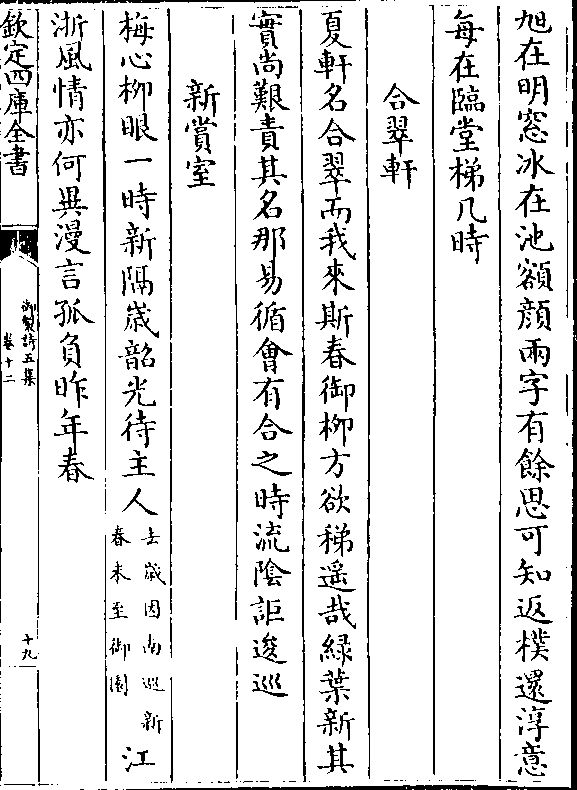 旭在明窓冰在池額顔兩字有餘思可知返樸還淳意
每在臨堂梯几時
合翠軒
夏軒名合翠而我來斯春御柳方欲稊遥哉緑葉新其
實尚艱責其名那易循會有合之時流陰詎逡巡
新賞室
梅心柳眼一時新隔嵗韶光待主人去嵗因南巡新春未至御園江
浙風情亦何異漫言孤負昨年春
欽定四庫全書
御製詩五集
卷十二
十九